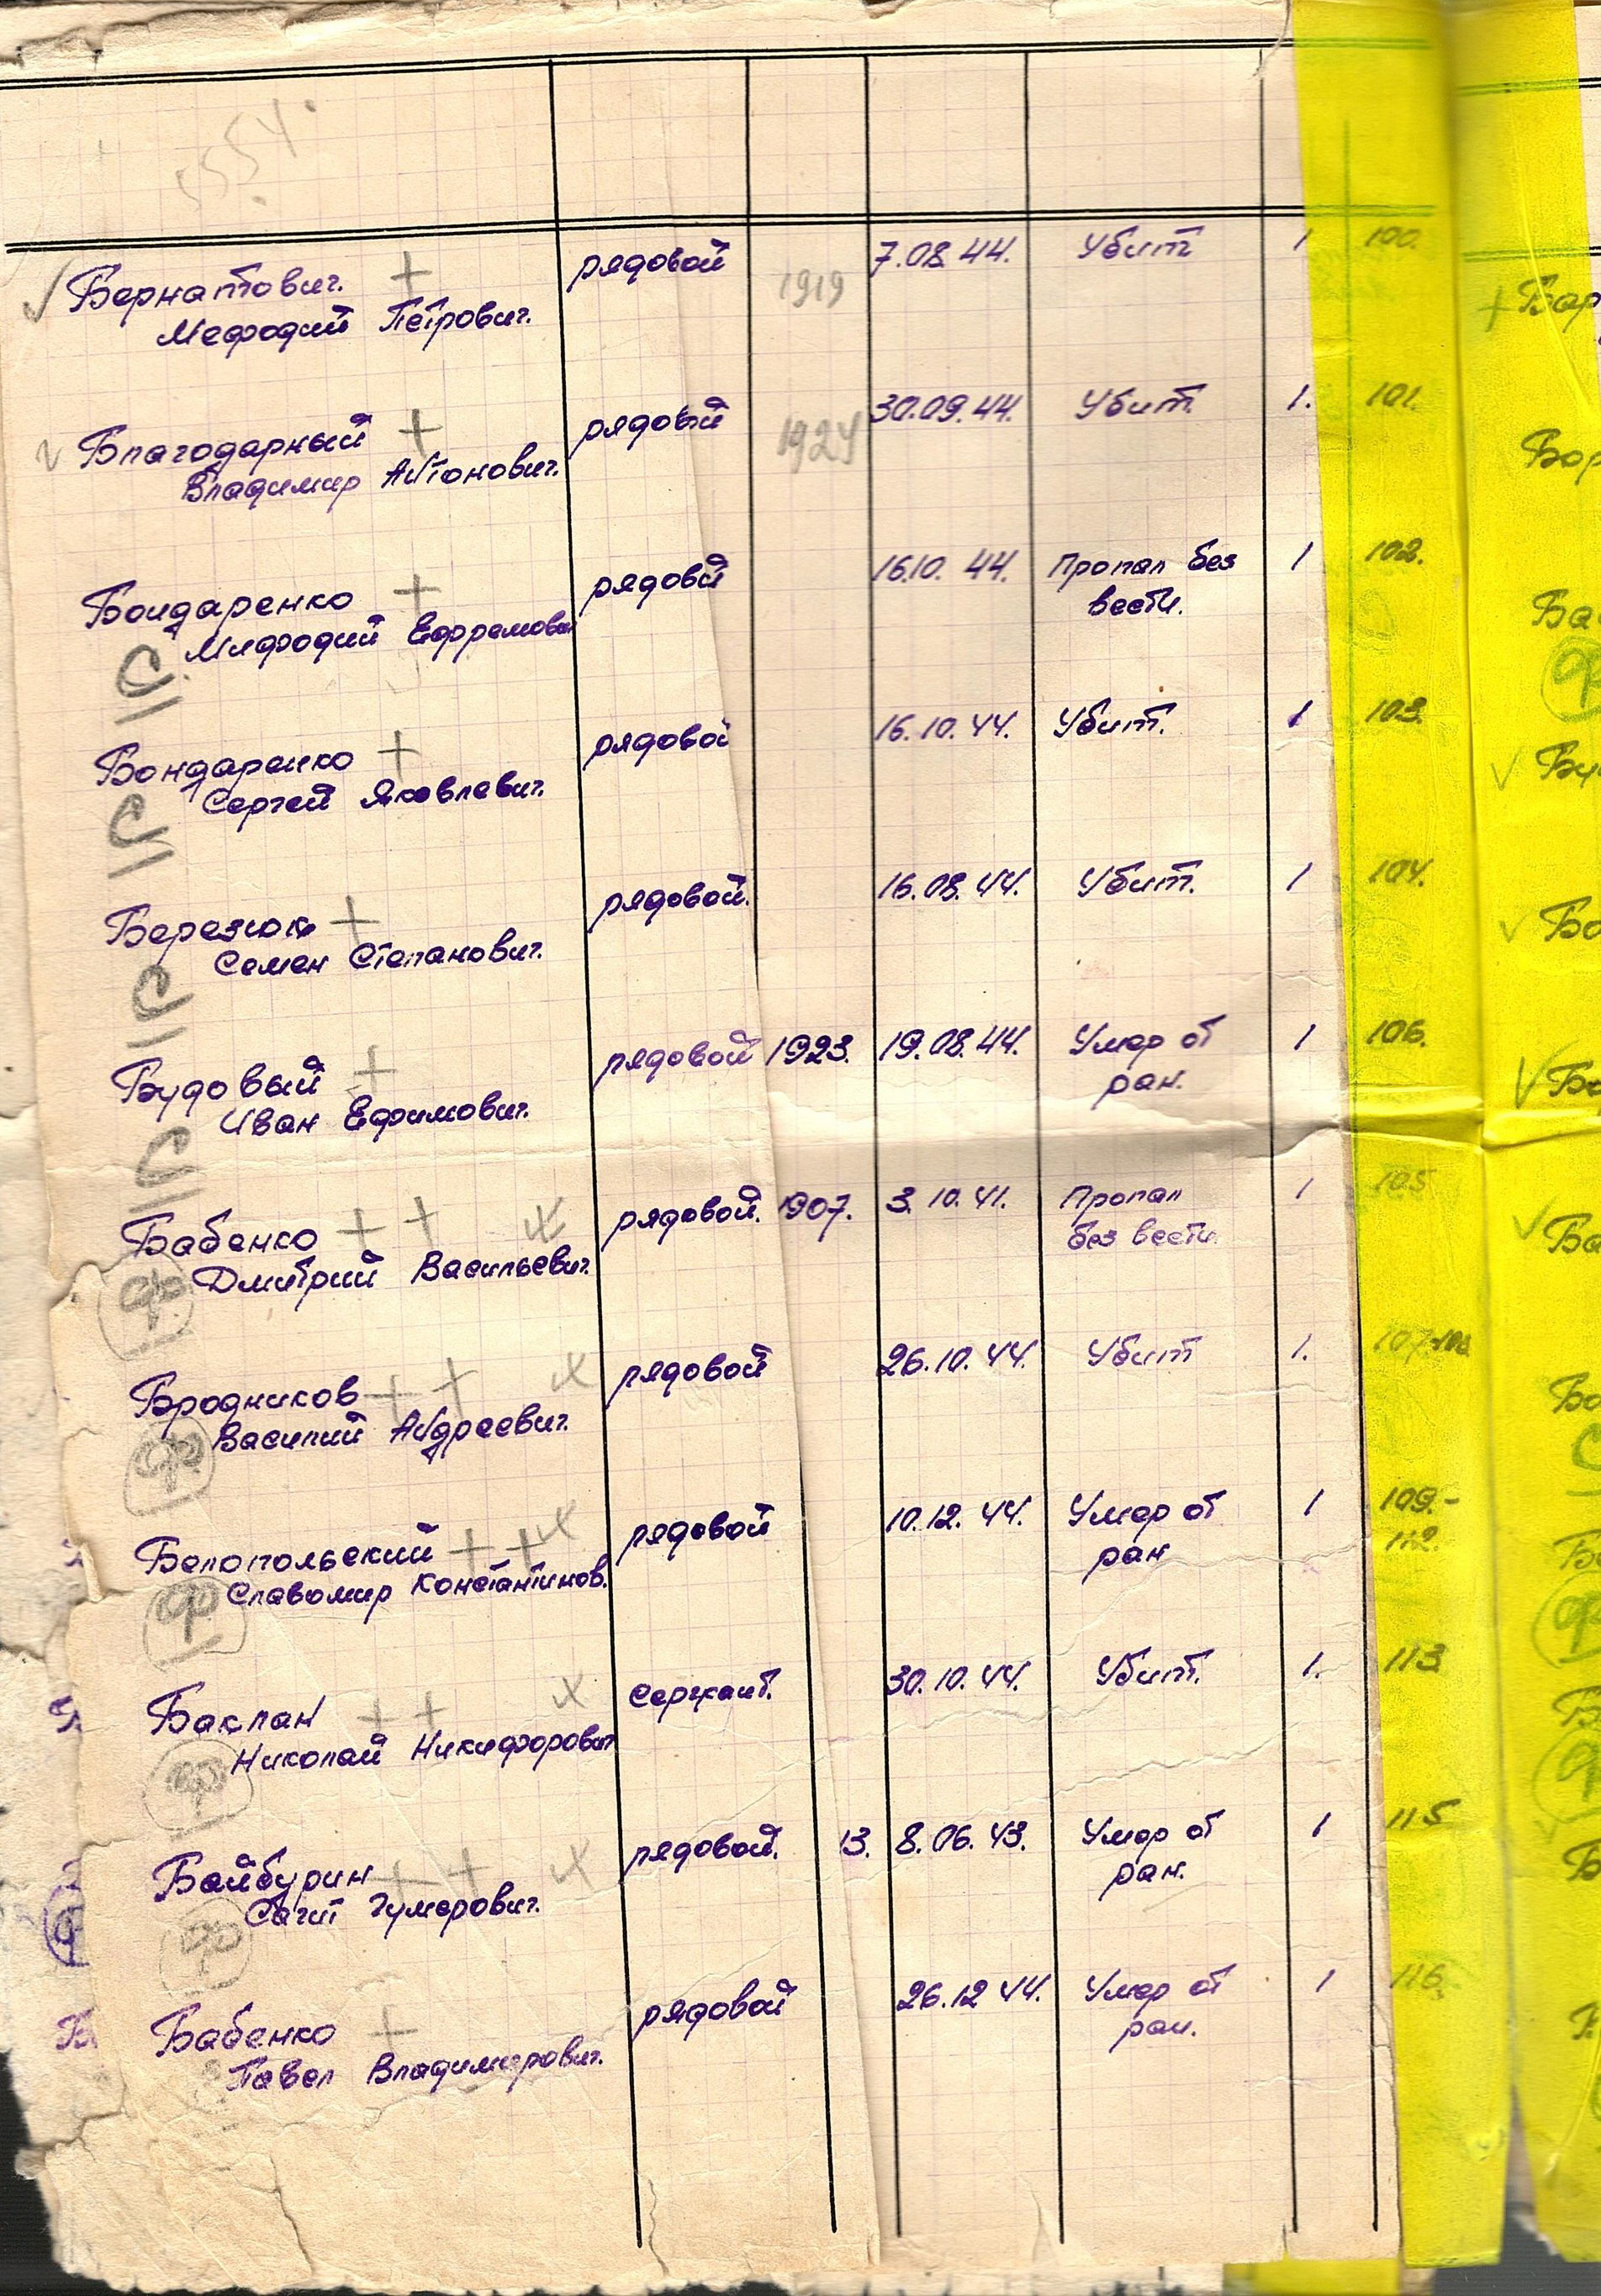 Бернатович. + рядовой 1919 7.08.44. Убит 1 100.
Мефодий Петрович.
Благодарный + рядовый 1924 30.09.44. Убит. 1. 101.
Владимир Антонович.
Бондаренко + рядовй 16.10.44. Пропал без 1 102.
Мифодий Ефремович вести.
Бондаренко + рядовой 16.10.44. Убит. 1 103.
Сергей Яковлевич.
Березюк + рядовой. 16.08.44. Убит. 1 104.
Семен Степанович.
Будовый + рядовой 1923. 19.08.44. Умер от 1 106.
Иван Ефимович. ран.
Бабенко + + рядовой. 1907. 3.10.41. Пропал 1 105
Дмитрий Васильевич. без вести.
Бродников + + рядовой 26.10.44. Убит 1.
Василий Андреевич.
Белопольский + + рядовой 10.12.44. Умер от 1 109.-
Славомир Константинов. ран 112.
Баклан + + Сержант. 30.10.44. Убит. 1. 113
Николай Никифорович
Байбурин + + рядовой. 13. 8.06.43. Умер от 1 115
Сагит Гумерович. ран.
Бабенко + рядовой 26.12 44. Умер от 1 116.
Павел Владимирович. ран.